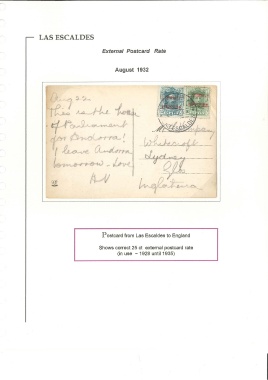 LAS ESCALDES
External Postcard Rate
August 1932
Aug 22
This is the house
of Parliament
for Andorra!
I leave Andorra
tomorrow. Love
Whitecroft
Lydney
Glos
Inglaterra
Postcard from Las Escaldes to England
Shows correct 25 ct external postcard rate
(in use ~ 1928 until 1935)